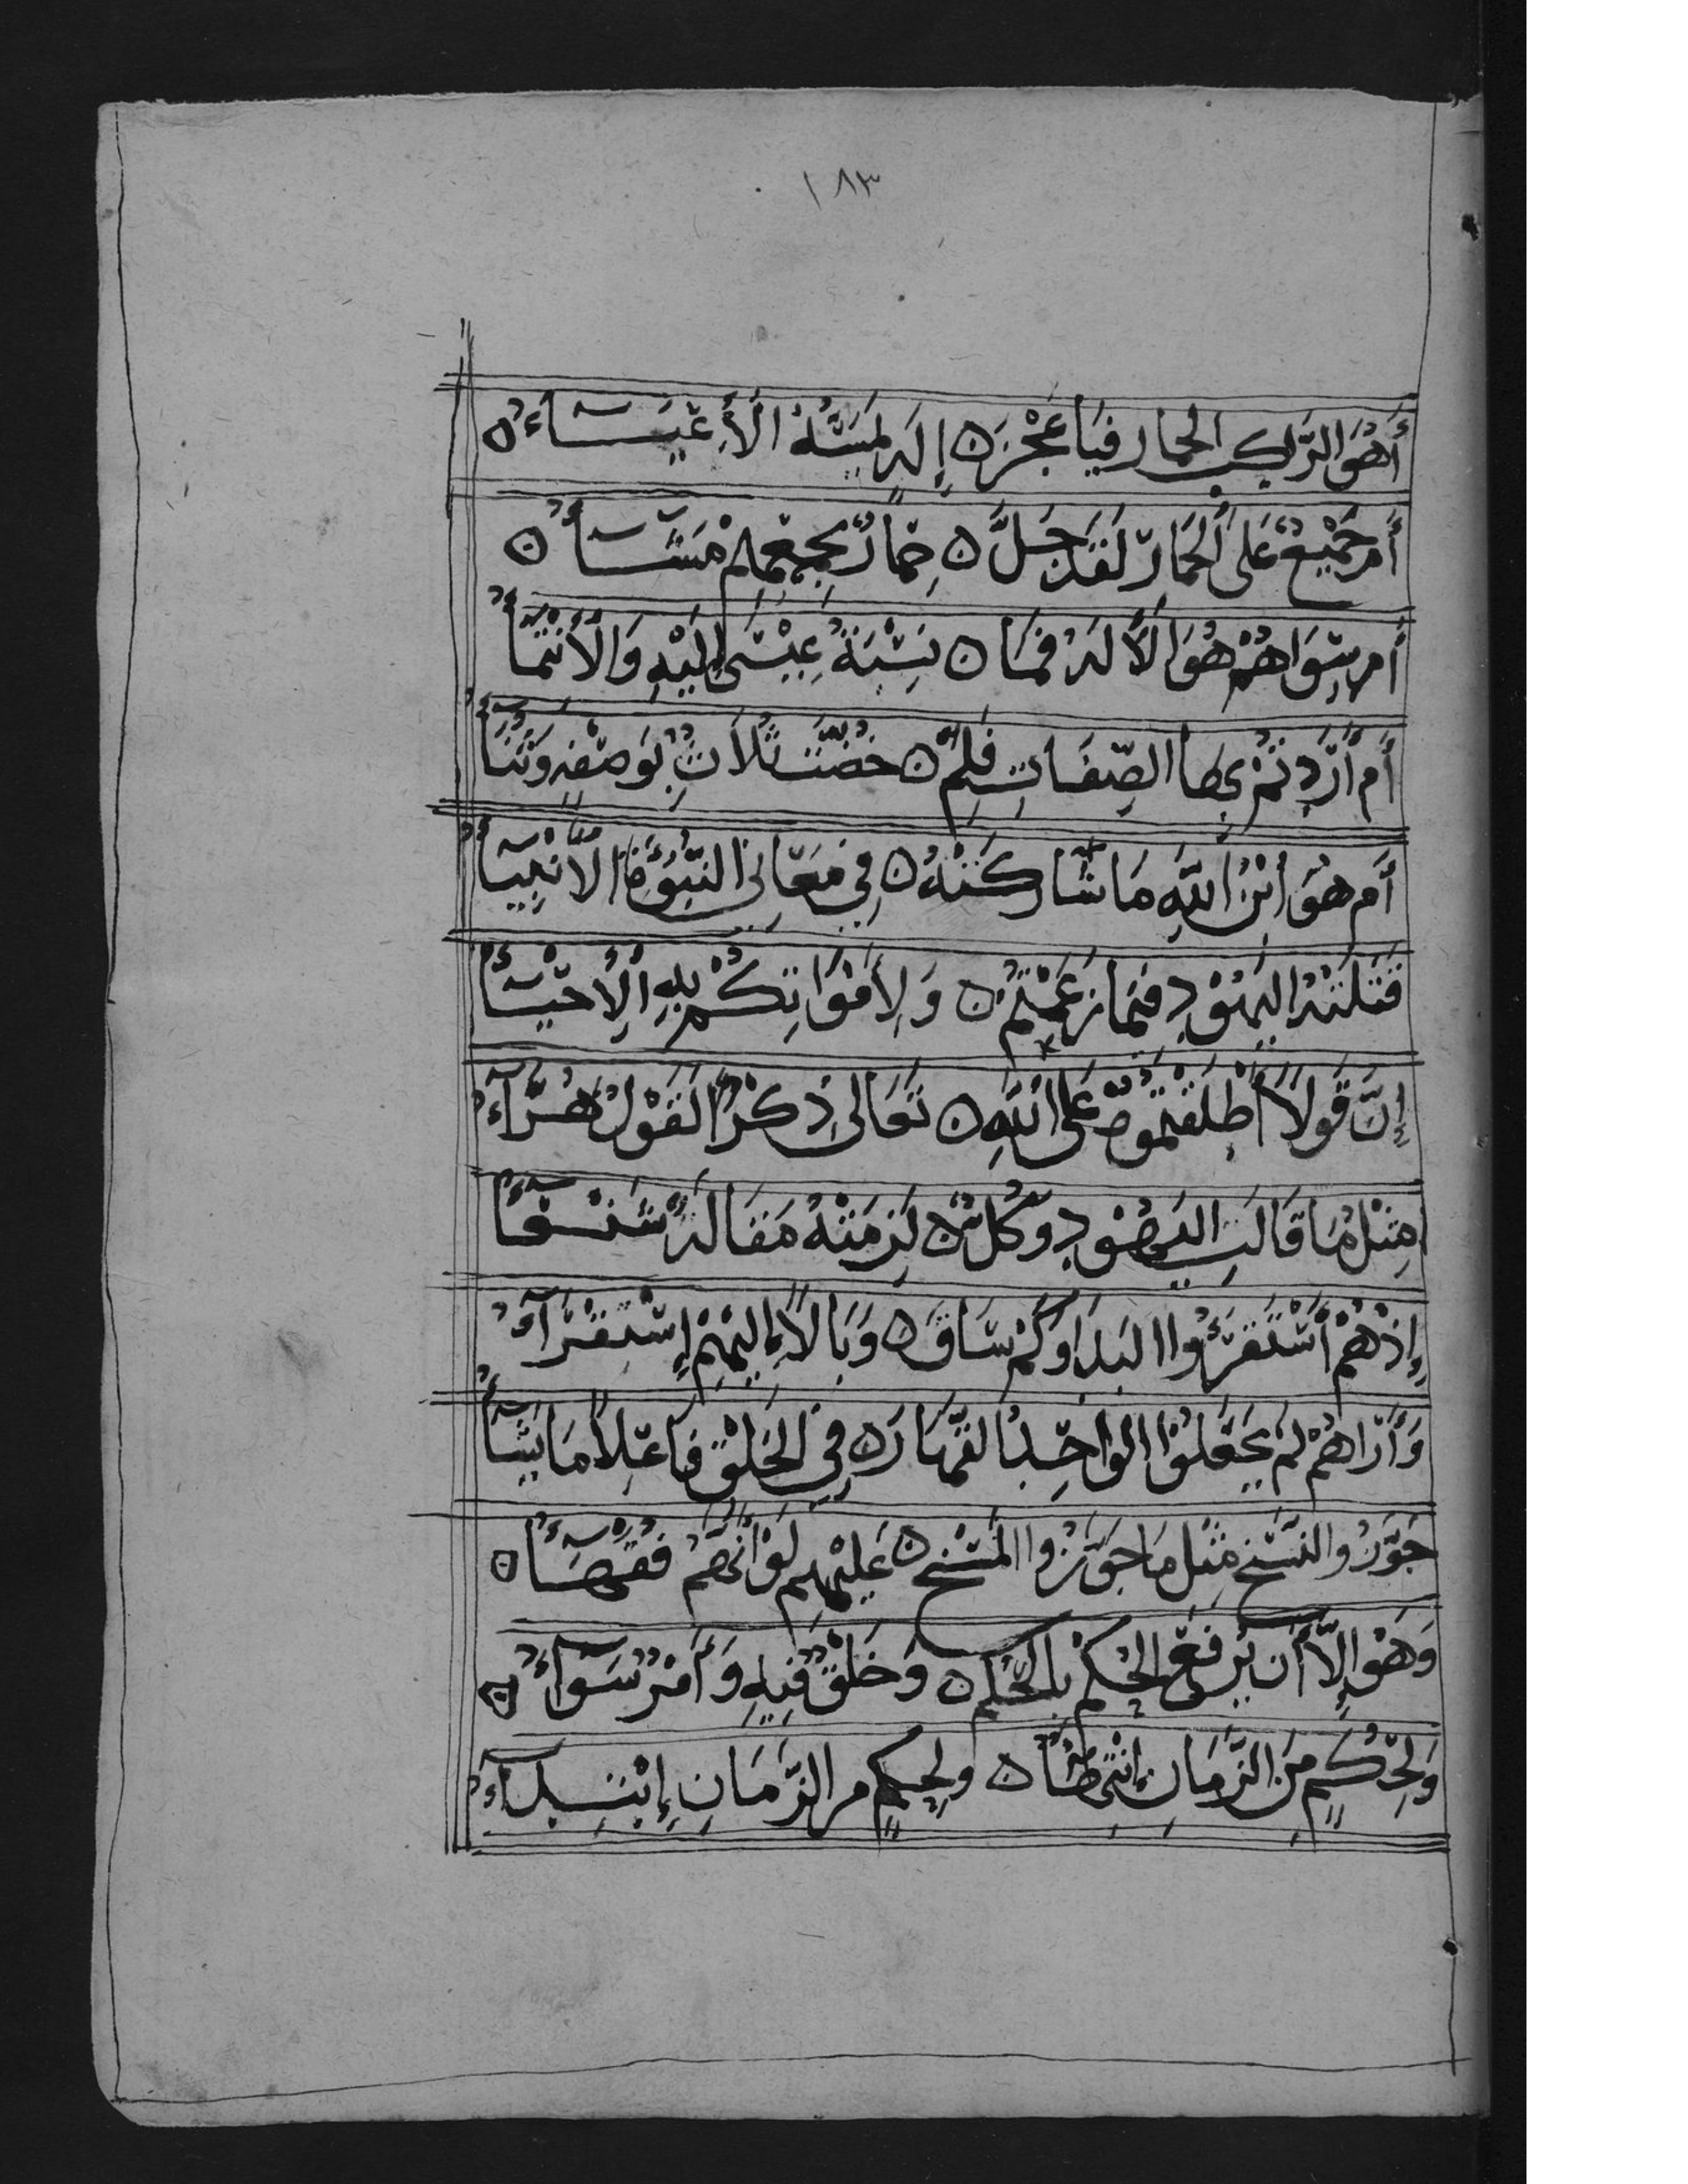 ١٨٣
أَهُوَ الرَّاكِبُ الحِمارَ فَيَا عَجْزَ ۝ إِلَهٍ يَمَسُّهُ الأَعْيَـــاءُ ۝
أَمْ جَمِيْعٌ عَلَى الحِمَارِ لَقَدْ جَلَّ ۝ حِمَارٌ بِجَمْعِهِمْ مَشَّـــاءُ ۝
أَمْ سِوَاهُمْ هُوَ الأِلَهُ فَمَا ۝ نِسْبَةُ عِيْسَى إِلَيْهِ وَالأِنْتِمَاءُ
أَمْ أَرَدْتُمْ بِهَا الصِّفَاتِ فَلِمْ ۝ خُصَّتْ ثَلَاثٌ بِوَصْفِهِ وَثُنَاءُ
أَمْ هُوَ ابْنُ اللَّهِ مَا شَارَكَتْهُ ۝ فِي مَعَانِي النُّبُوَّةِ الأَنْبِيَاءُ
قَتَلَتْهُ اليَهُوْدُ فِيمَا زَعَمْتُمْ ۝ وَلِأَمْوَاتِكُمْ بِهِ الأِحْيَـاءُ
إِنَّ قَوْلًا أَطْلَقْتُمُوهُ عَلَى اللَّهِ ۝ تَعَالَى ذِكْرًا لَقَوْلٌ هُـرَآءُ
مِثْلُ مَا قَالَتِ اليَهُوْدُ وَكُلٌّ ۝ لَزِمَتْهُ مَقَالَةٌ شَنْـعَاءُ
إِذْ هُمْ أسْتَقْرَؤُا البَدَا وَكَمْ سَاقَ ۝ وَبَالًا إِلَيْهِمْ إِسْتِقْـرَآءُ
وَأَرَاهُمْ لَمْ يَجْعَلُوْا الوَاحِدَ القَهَّارَ ۝ فِي الخَلْقِ فَاعِلًا مَا يَشَاءُ
جَوَّزُوا النَّسْخَ مِثْلَ مَا جَوَّزُوا المَسْخَ ۝ عَلَيْهِمْ لَوْ أَنَّهُمْ فُقَهَـاءُ ۝
وَهُوَ إِلَّا أَنْ يُرْفَعَ الحُكْمُ بِالحُكْمِ ۝ وَخَلْقٌ فِيْهِ وَأَمْرٌ سَوَآءُ ۝
وَلِحُكْمٍ مِنَ الزَّمَانِ إِنْتِهَاءٌ ۝ وَلِحُكْمٍ مِنَ الزَّمَانِ إِبْتِـدَآءُ